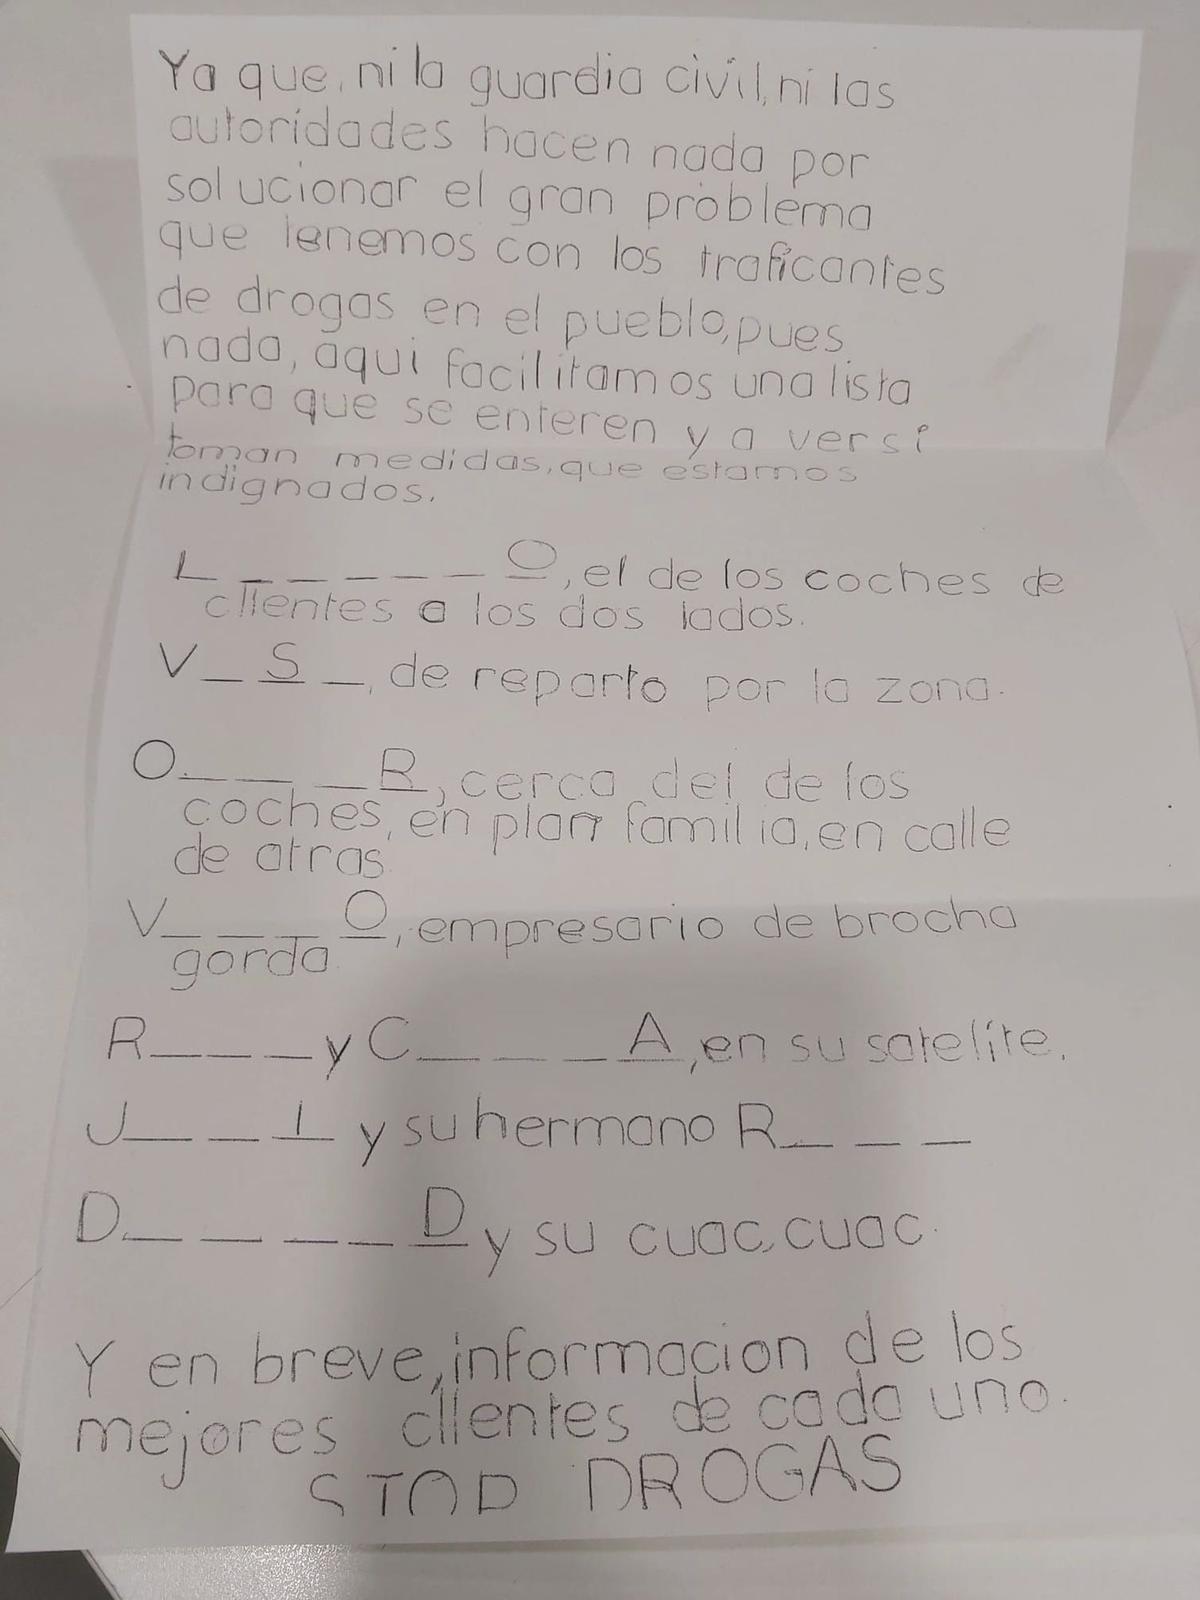 Ya que, ni la guardia civil, ni las
autoridades hacen nada por
solucionar el gran problema
que tenemos con los traficantes
de drogas en el pueblo, pues
nada, aqui facilitamos una lista
para que se enteren y a ver si
toman medidas, que estamos
indignados.
L _ _ _ _ _ O, el de los coches de
clientes a los dos lados.
V _ S _, de reparto por la zona.
O _ _ _ R, cerca del de los
coches, en plan familia, en calle
de atras.
V _ _ _ O, empresario de brocha
gorda.
R _ _ _ y C _ _ _ A, en su satelite.
J _ _ I y su hermano R _ _ _
D _ _ _ _ D y su cuac, cuac.
Y en breve, informacion de los
mejores clientes de cada uno.
STOP DROGAS